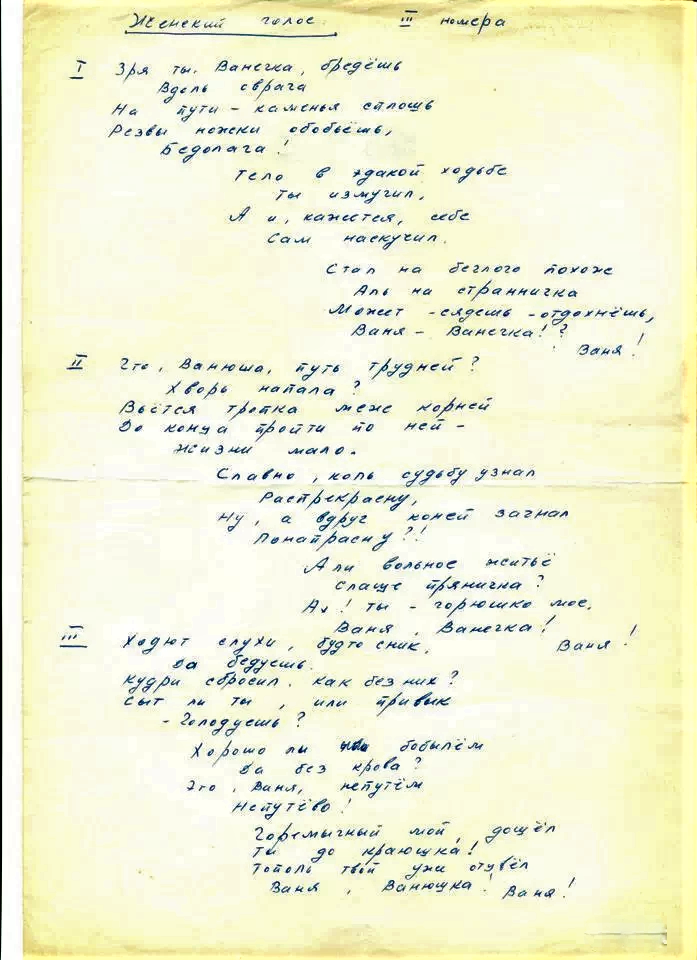 Женский голос. III номера
I Зря ты, Ванечка, бредёшь
Вдоль оврага
На пути - каменья сплошь
Резвы ножки обобьёшь,
Бедолага!
Тело в эдакой ходьбе
Ты измучил,
А и, кажется, себе
Сам наскучил.
Стал на беглого похож
Аль на странничка
Может - сядешь - отдохнёшь,
Ваня - Ванечка!?
Ваня!
II Что, Ванюша, путь трудней?
Хворь напала?
Вьётся тропка меж корней
До конца пройти по ней -
жизни мало.
Славно, коль судьбу узнал
Распрекрасну,
Ну, а вдруг коней загнал
Понапрасну?!
Али вольное житьё
слаще прянична?
Ах! ты - горюшко мое,
Ваня, Ванечка!
Ваня!
III Ходют слухи, будто сник,
Да бедуешь.
кудри сбросил. как без них?
сыт ли ты, или привык
- Голодуешь?
Хорошо ли бобылём
Да без крова?
Это, Ваня, непутём
Непутёво!
Горемычный мой, дошёл
Ты до краюшка!
Тополь твой уже отцвёл
Ваня, Ванюшка!
Ваня!